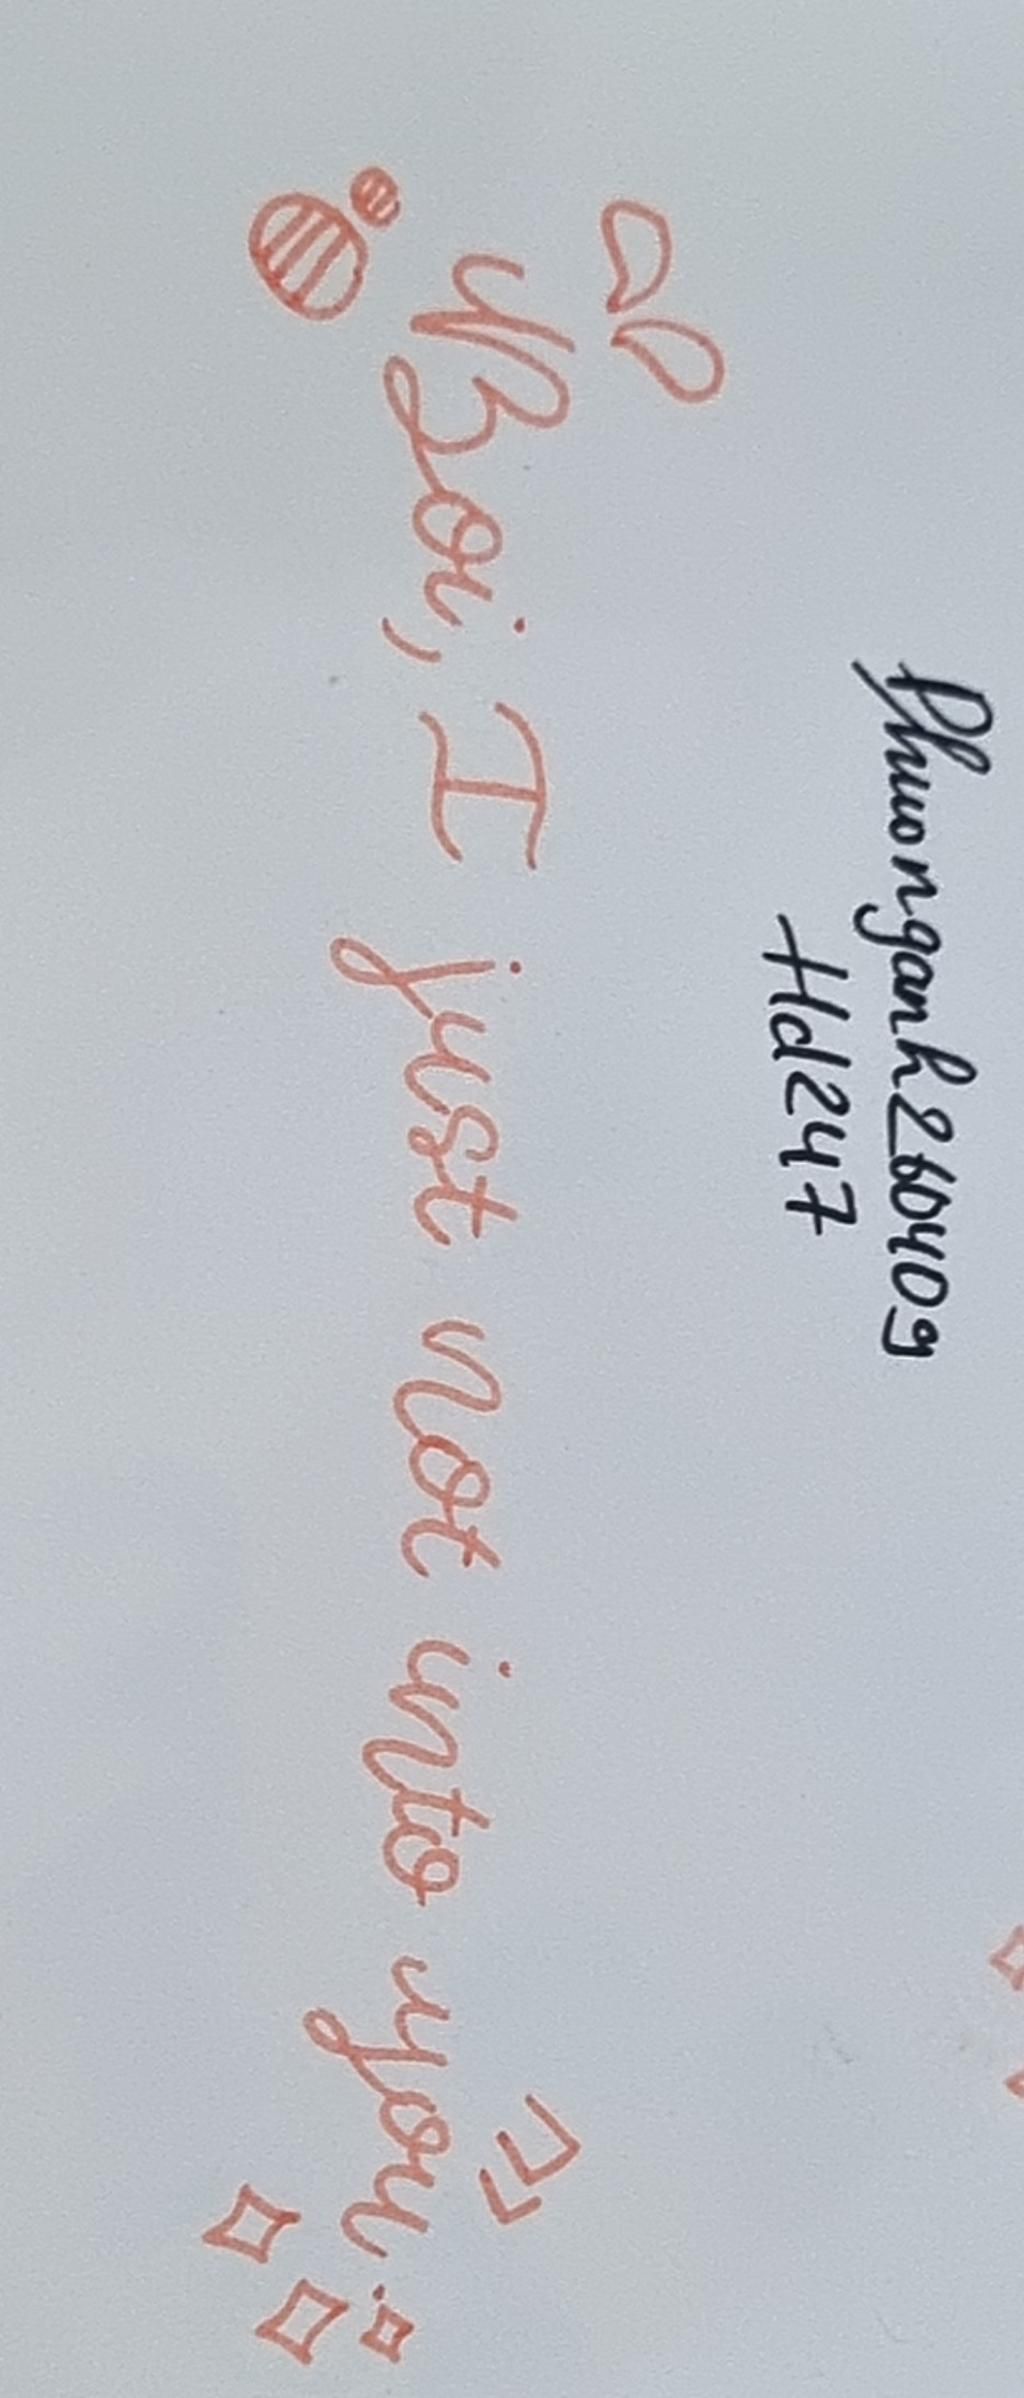 Phuonganh260409
Hd247
"Boi, I just not into you."